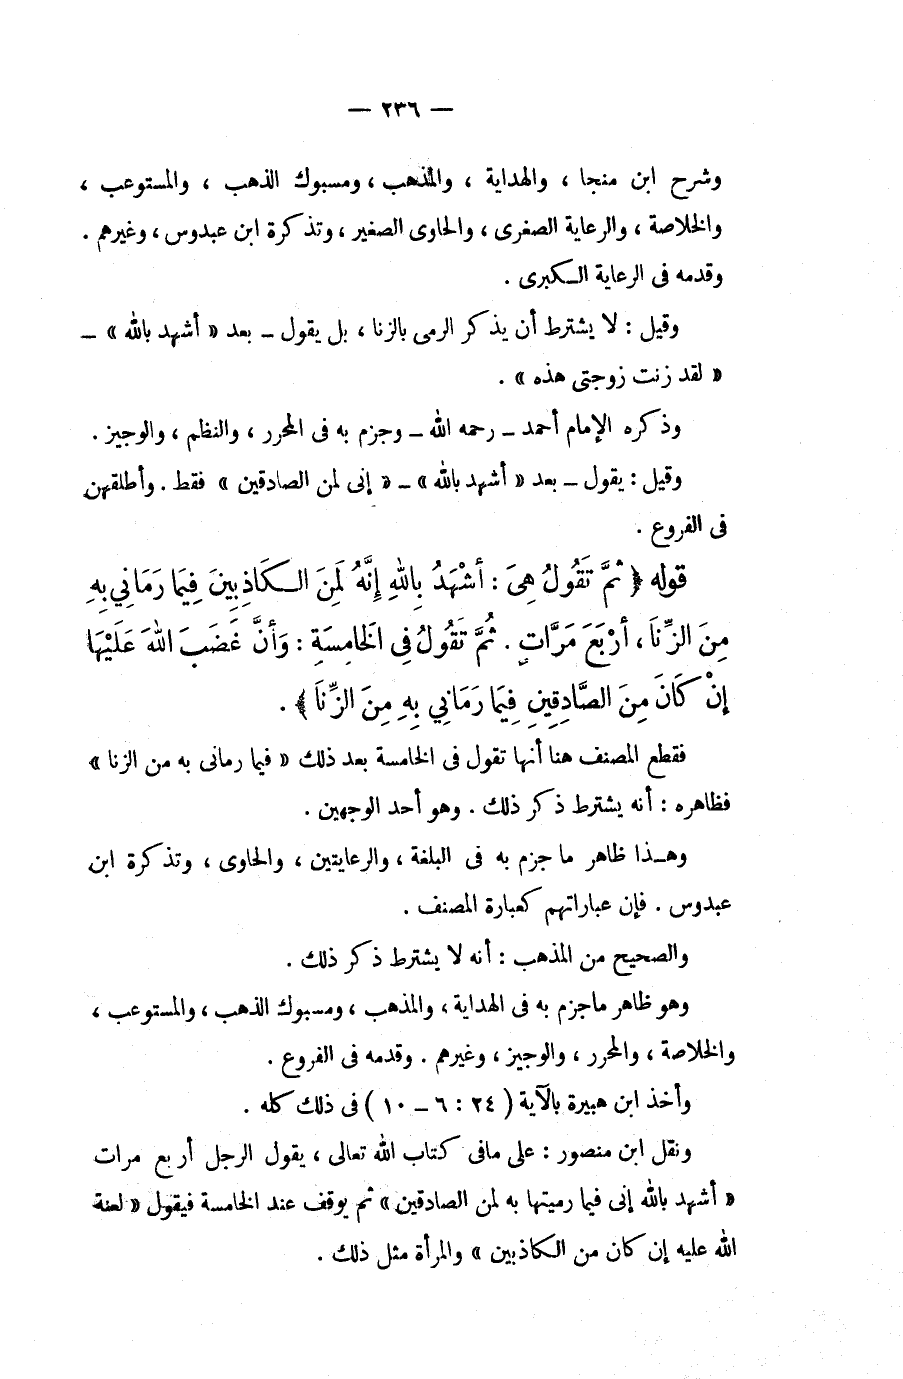 — ٢٣٦ —
وشرح ابن منجا ، والهداية ، والمذهب ، ومسبوك الذهب ، والمستوعب ،
والخلاصة ، والرعاية الصغرى ، والحاوى الصغير ، وتذكرة ابن عبدوس ، وغيرهم .
وقدمه فى الرعاية الكبرى .
وقيل : لا يشترط أن يذكر الرمى بالزنا ، بل يقول ــ بعد « أشهد بالله » ــ
« لقد زنت زوجتى هذه » .
وذكره الإمام أحمد ــ رحمه الله ــ وجزم به فى المحرر ، والنظم ، والوجيز .
وقيل : يقول ــ بعد « أشهد بالله » ــ « إنى لمن الصادقين » فقط . وأطلقهن
فى الفروع .
قوله ﴿ ثُمَّ تَقُولُ هِىَ : أَشْهَدُ بِاللهِ إِنَّهُ لَمِنَ الكَاذِبِينَ فِيمَا رَمَانِي بِهِ
مِنَ الزِّنَا ، أَرْبَعَ مَرَّاتٍ . ثُمَّ تَقُولُ فِى الخَامِسَةِ : وَأَنَّ غَضَبَ اللهَ عَلَيْهَا
إِنْ كَانَ مِنَ الصَّادِقِينِ فِيمَا رَمَانِي بِهِ مِنَ الزِّنَا ﴾ .
فقطع المصنف هنا أنها تقول فى الخامسة بعد ذلك « فيما رمانى به من الزنا »
فظاهره : أنه يشترط ذكر ذلك . وهو أحد الوجهين .
وهـذا ظاهر ما جزم به فى البلغة ، والرعايتين ، والحاوى ، وتذكرة ابن
عبدوس . فإن عباراتهم كعبارة المصنف .
والصحيح من المذهب : أنه لا يشترط ذكر ذلك .
وهو ظاهر ماجزم به فى الهداية ، والمذهب ، ومسبوك الذهب ، والمستوعب ،
والخلاصة ، والمحرر ، والوجيز ، وغيرهم . وقدمه فى الفروع .
وأخذ ابن هبيرة بالآية ( ٢٤ : ٦ ــ ١٠ ) فى ذلك كله .
ونقل ابن منصور : على مافى كتاب الله تعالى ، يقول الرجل أربع مرات
« أشهد بالله إنى فيما رميتها به لمن الصادقين » ثم يوقف عند الخامسة فيقول « لعنة
الله عليه إن كان من الكاذبين » والمرأة مثل ذلك .